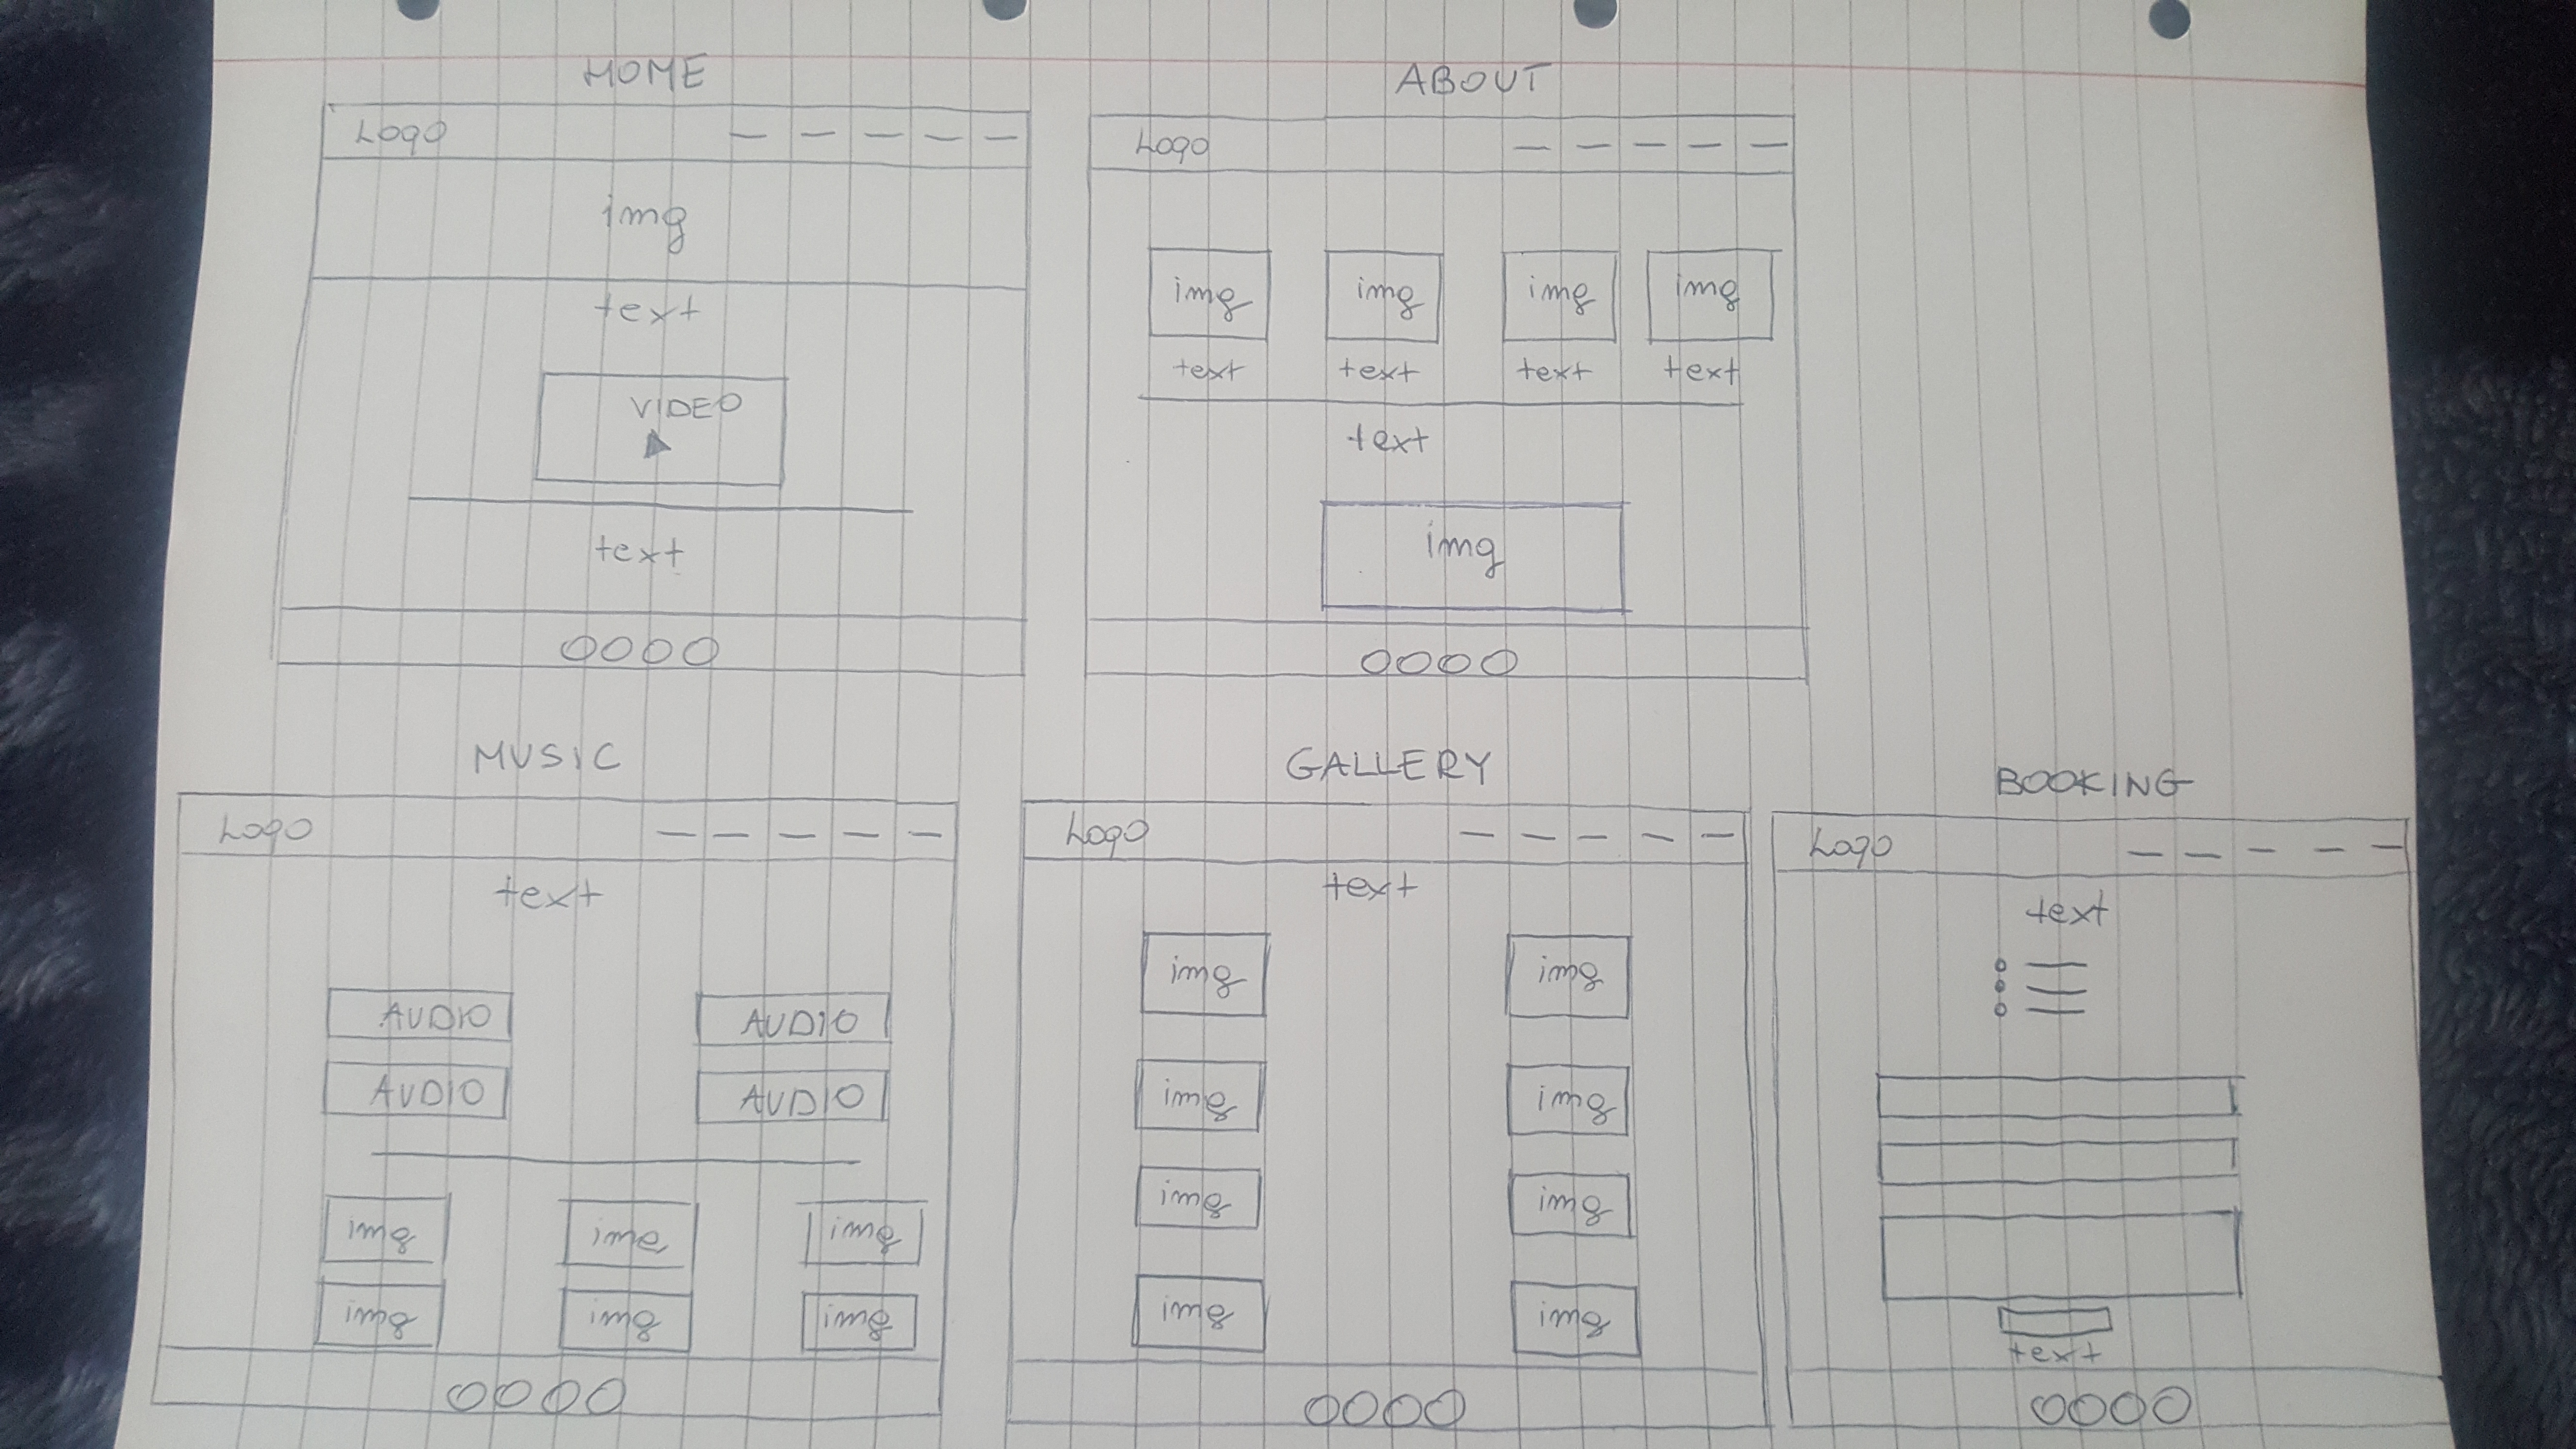 HOME
Logo
img
text
VIDEO
text
0000
ABOUT
Logo
img img img img
text text text text
text
img
0000
MUSIC
Logo
text
AUDIO AUDIO
AUDIO AUDIO
img img img
img img img
0000
GALLERY
Logo
text
img img
img img
img img
img img
0000
BOOKING
Logo
text
text
0000